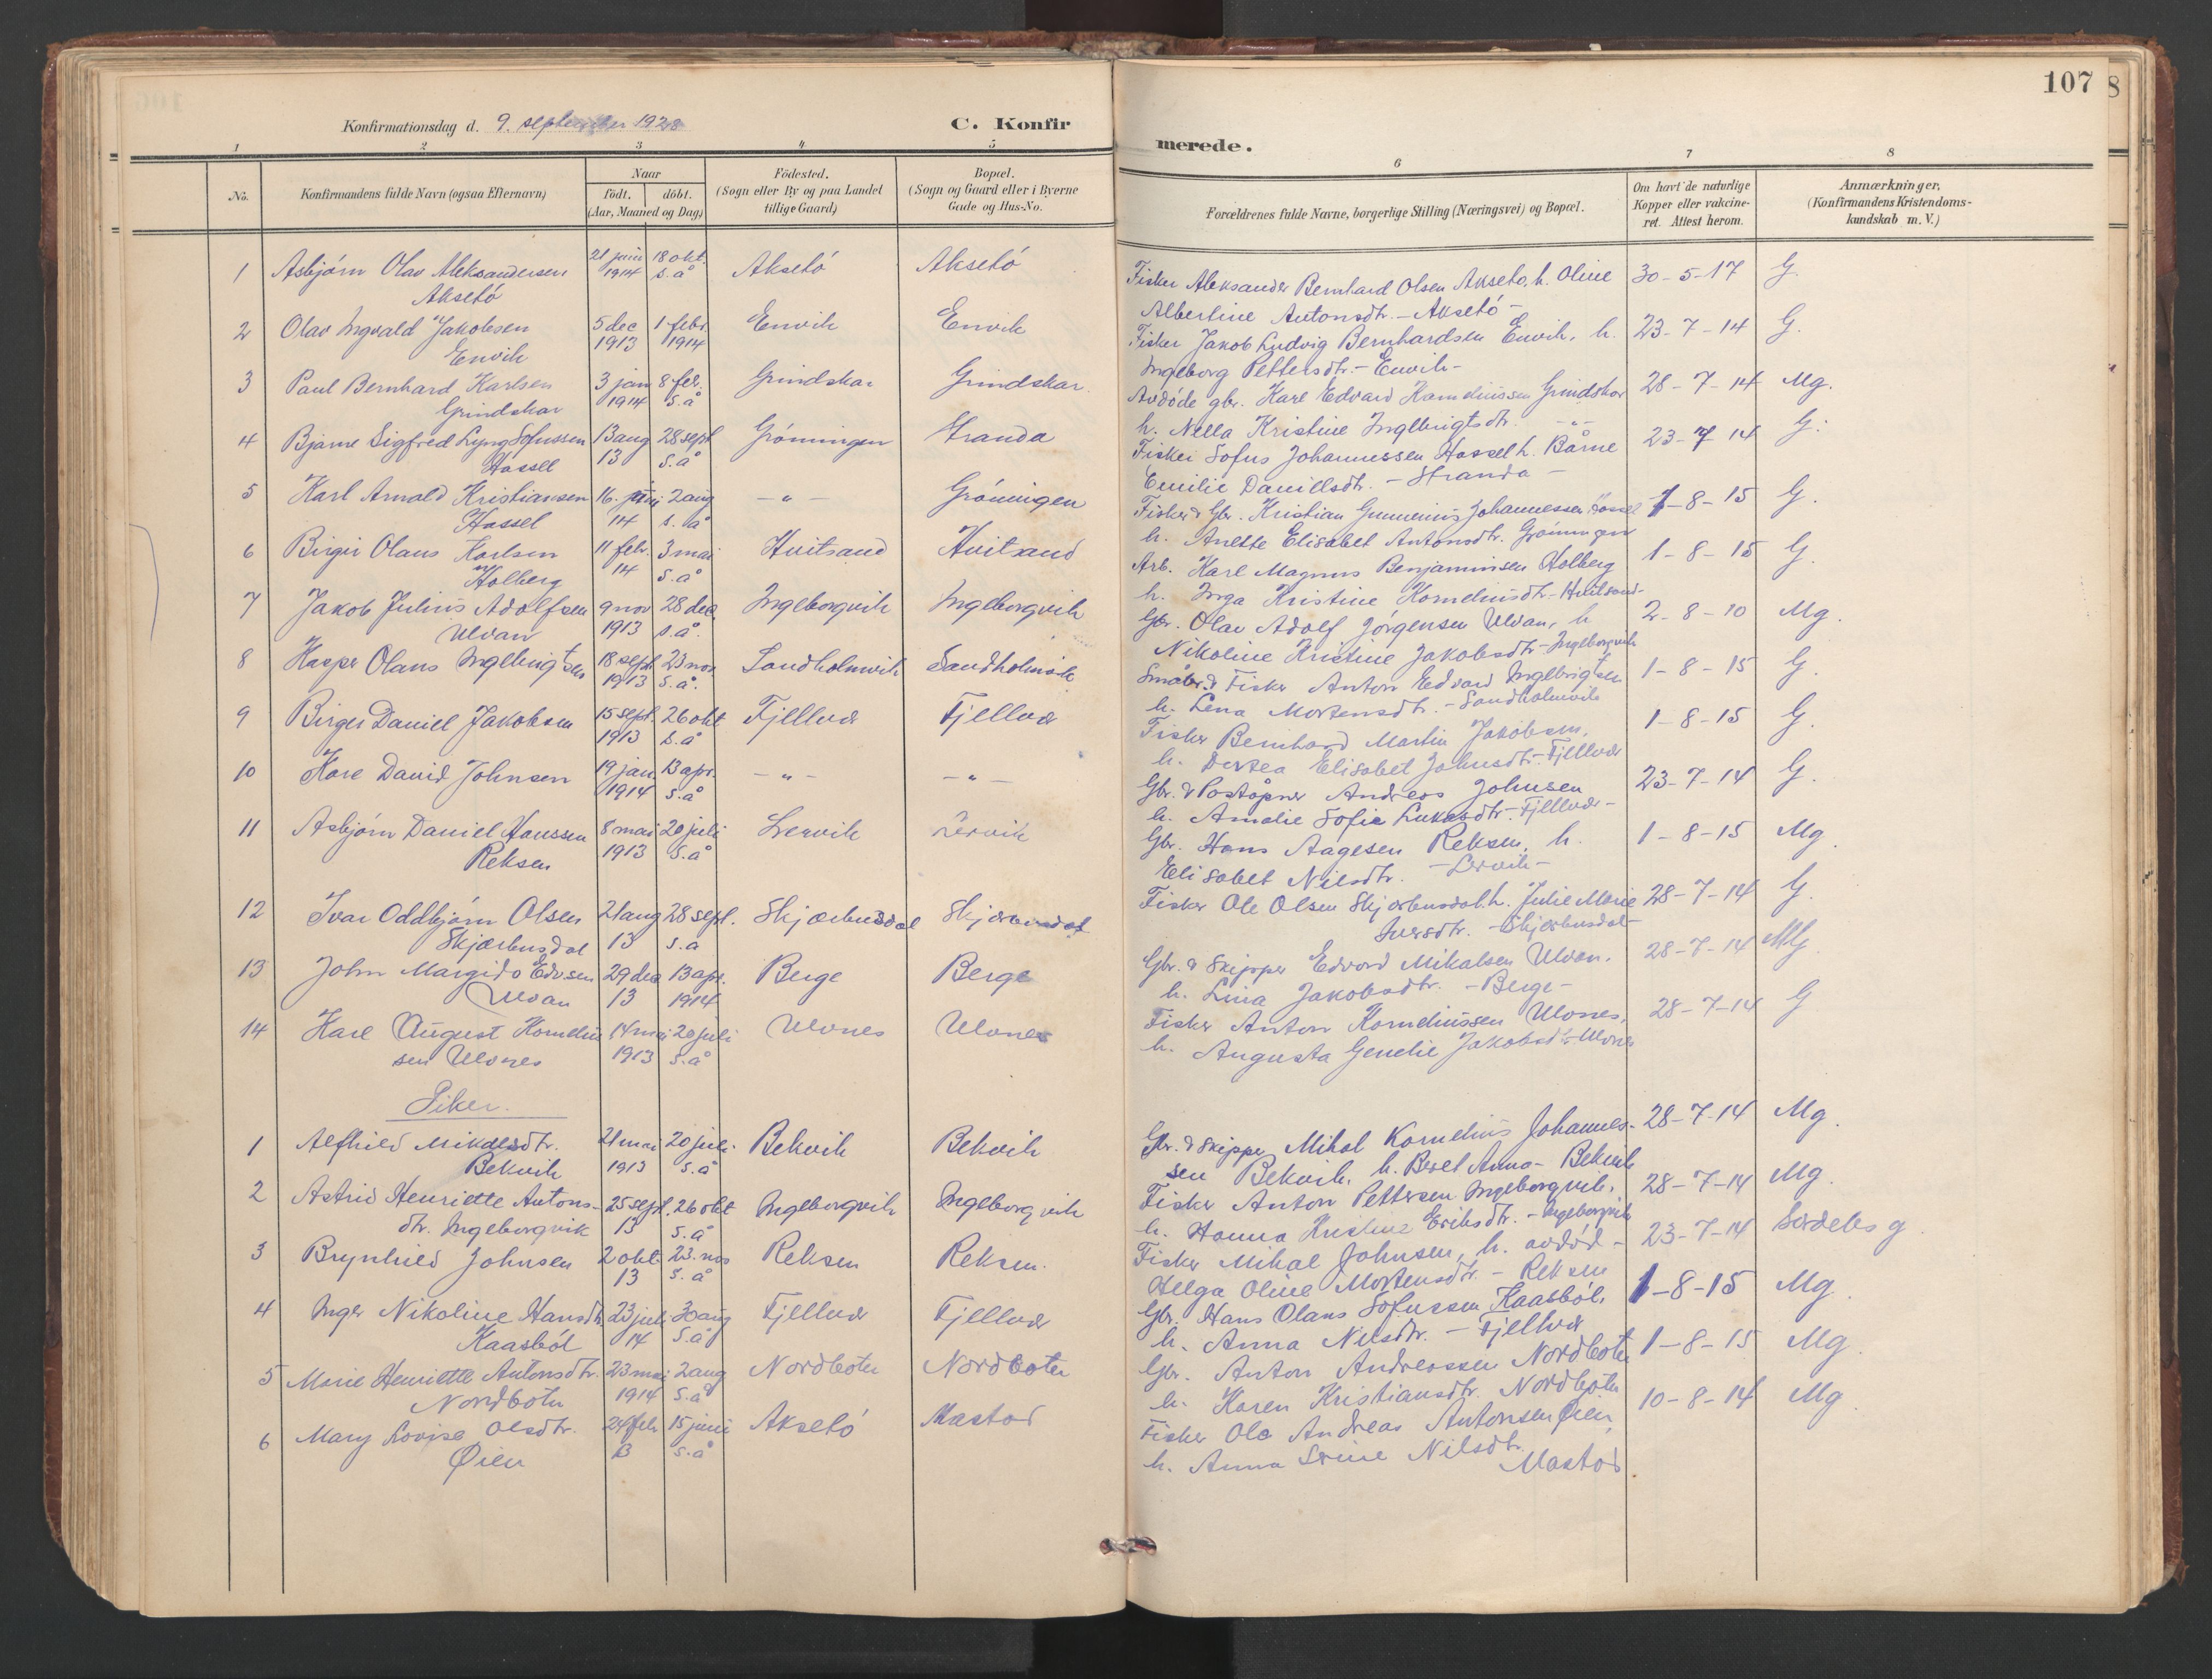 107
Konfirmationsdag d. 9. september 1928
C. Konfir
merede.
1 2 3 4 5 6 7 8
No.
Konfirmandens fulde Navn (ogsaa Efternavn)
Naar
födt. döbt.
(Aar, Maaned og Dag)
Födested.
(Sogn eller By og paa Landet
tillige Gaard)
Bopæl.
(Sogn og Gaard eller i Byerne
Gade og Hus-No.
Forældrenes fulde Navne, borgerlige Stilling (Næringsvei) og Bopæl.
Om havt de naturlige
Kopper eller vakcine-
ret. Attest herom.
Anmærkninger,
(Konfirmandens Kristendoms-
kundskab m. V.)
1 Asbjørn Olav Aleksandersen 21 juni 18 okt. Aksetö Aksetö Fisker Aleksander Bernhard Olsen Aksetö, h. Oline 30-5-17 G.
Aksetö 1914 s.å Albertine Antonsdtr. - Aksetö -
2 Olav Ingvald Jakobsen 5 dec 1 febr. Envik Envik Fisker Jakob Ludvig Bernhardsen Envik, h. 23-7-14 G.
Envik 1913 1914 Ingeborg Pettersdtr. - Envik -
3 Paul Bernhard Karlsen 3 jan 8 feb. Grindskar Grindskar Avdöde gbr. Karl Edvard Korneliussen Grindskar 28-7-14 Mg.
Grindskar 1914 s.å h. Nella Kristine Ingebrigtsdtr. - " -
4 Bjarne Sigfred Lyng Sofussen 13 aug 28 sept Gröningen Stranda Fisker Sofus Johannessen Hassel h. Bårne 23-7-14 G.
Hassel 13 s.å Emilie Danillsdtr. - Stranda -
5 Karl Arnold Kristiansen 16. juni 2 aug - " - Gröningen Fisker & Gbr. Kristian Gunnerius Johannessen Hassel 1-8-15 G.
Hassel 14 s.å h. Anette Elisabet Antonsdtr. Gröningen
6 Birger Olaus Karlsen 11 febr. 3 mai Hvitsand Hvitsand Arb. Karl Magnus Benjaminsen Holberg 1-8-15 G.
Holberg 14 s.å h. Inga Kristine Korneliusdtr - Hvitsand -
7 Jakob Julius Adolfsen 9 nov 28 dec Ingeborgvik Ingeborgvik Gbr. Olav Adolf Jörgensen Ulvan, h 2-8-10 Mg.
Ulvan 1913 s.å. Nikoline Kristine Jakobsdtr - Ingeborgvik
8 Kasper Olaus Ingebrigtsen 18 sept 23 nov Sandholmvik Sandholmvik Småbr. & Fisker Anton Edvard Ingebrigtsen 1-8-15 G.
1913 s.å. h. Lena Mortensdtr. - Sandholmvik
9 Birger Daniel Jakobsen 15 sept. 26 okt Fjellvær Fjellvær Fisker Bernhard Martin Jakobsen, 1-8-15 G.
1913 s.å h. Dortea Elisabet Johnsdtr. - Fjellvær
10 Kåre David Johnsen 19 jan. 13 apr. - " - - " - Gbr. & Poståpner Andreas Johnsen 23-7-14 G.
1914 s.å h. Amalie Sofie Lukasdtr. - Fjellvær -
11 Asbjörn Daniel Hanssen 8 mai 20 juli Lervik Lervik Gbr. Hans Aagesen Reksen, h. 1-8-15 Mg.
Reksen 1913 s.å Elisabet Nilsdtr. - Lervik -
12 Ivar Oddbjörn Olsen 21 aug 28 sept. Skjærbusdal Skjærbusdal Fisker Ole Olsen Skjærbusdal. h. Julie Marie 28-7-14 G.
Skjærbusdal 13 s.a Iversdtr. - Skjærbusdal -
13 John Margido Edvsen 29 dec 13 apr. Berge Berge Gbr. & Skipper Edvard Mikalsen Ulvan. 28-7-14 MG.
Ulvan 13 1914 h. Lina Jakobsdtr. - Berge -
14 Karl August Kornelius 14 mai 20 juli Ulvnes Ulvnes Fisker Anton Korneliussen Ulvnes, 28-7-14 G
sen Ulvnes 1913 s.å h. Augusta Genelie Jakobsdtr Ulvnes
Piker.
1 Alfhild Mikalsdtr. 21 mai 20 juli Bekvik Bekvik Gbr. & Skipper Mikal Kornelius Johannes- 28-7-14 Mg.
Bekvik 1913 s.å sen Bekvik, h. Beret Anna - Bekvik
2 Astrid Henriette Antons- 25 sept. 26 okt Ingeborgvik Ingeborgvik Fisker Anton Pettersen Ingeborgvik, 28-7-14 Mg.
dtr. Ingeborgvik 13 s.å h. Hanna Kristine Eriksdtr. - Ingeborgvik
3 Brynhild Johnsen 2 okt 23. nov Reksen Reksen. Fisker Mikal Johnsen, h. avdöd - 23-7-14 Særdeles g.
13 s.å Helga Oline Mortensdtr. - Reksen
4 Inger Nikoline Hansdtr 23 juli 30 aug Fjellvær Fjellvær Gbr. Hans Olaus Sofussen Kaasböl, 1-8-15 Mg.
Kaasböl 14 s.å h. Anna Nilsdtr. - Fjellvær
5 Marie Henriette Antonsdtr. 23 mai 2 aug Nordboten Nordboten Gbr. Anton Andreassen Nordboten 1-8-15 Mg.
Nordbotn 1914 s.å h. Karen Kristiansdtr. Nordbotn
6 Mary Lovise Olsdtr. 24 feb 15 juni Aksetö Mastad Fisker Ole Andreas Antonsen Øien, 10-8-14 Mg
Øien 13 s.å h. Anna Nilsdtr.
Mastad.